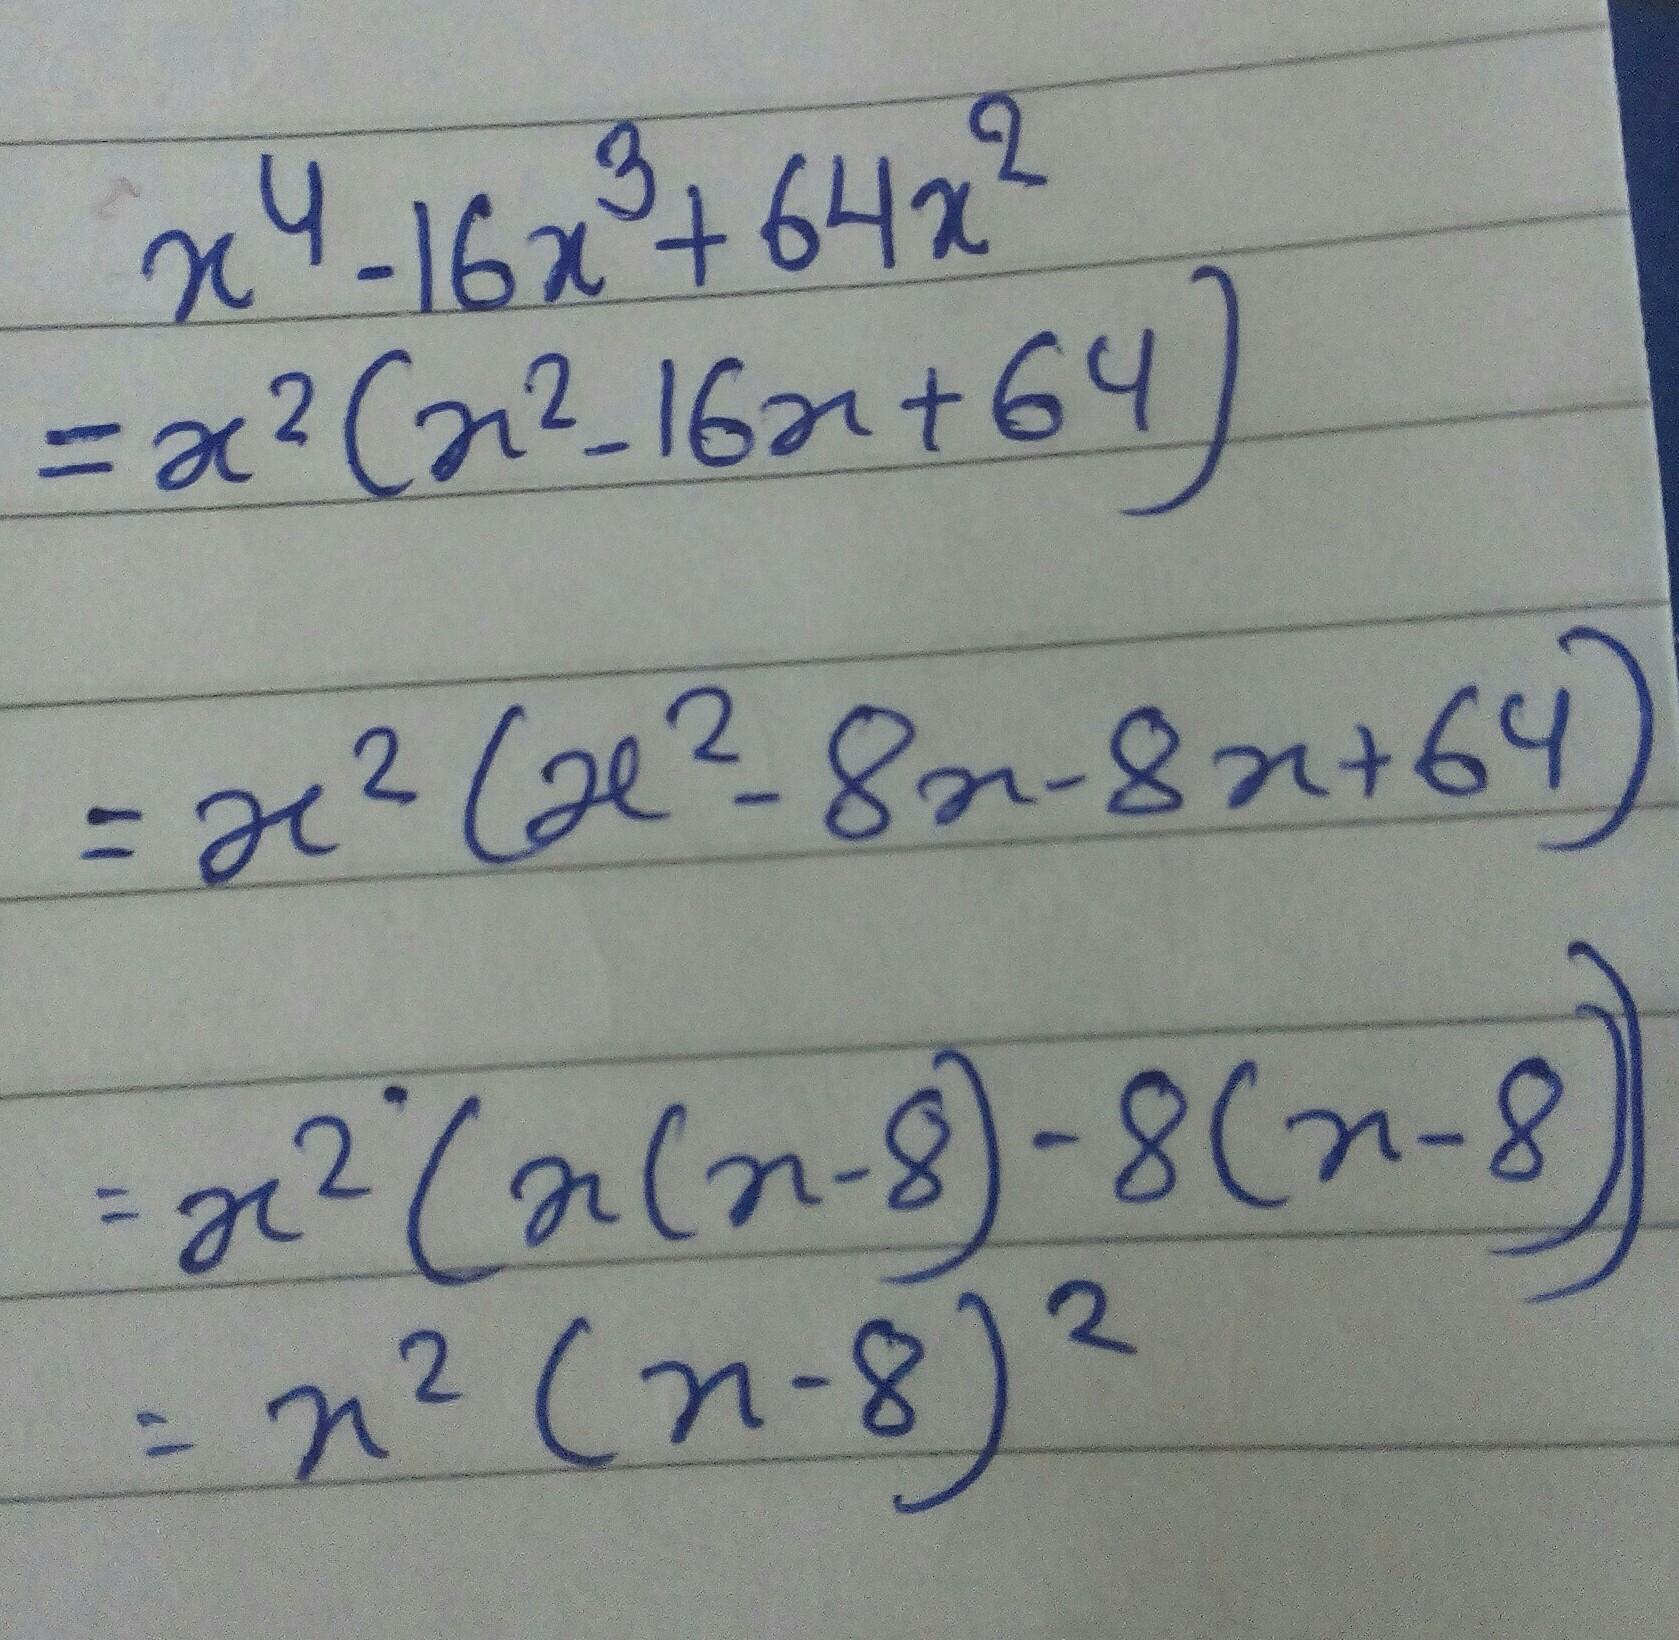 x⁴-16x³+64x²
=x²(x²-16x+64)
=x²(x²-8x-8x+64)
=x²(x(x-8)-8(x-8))
=x²(x-8)²